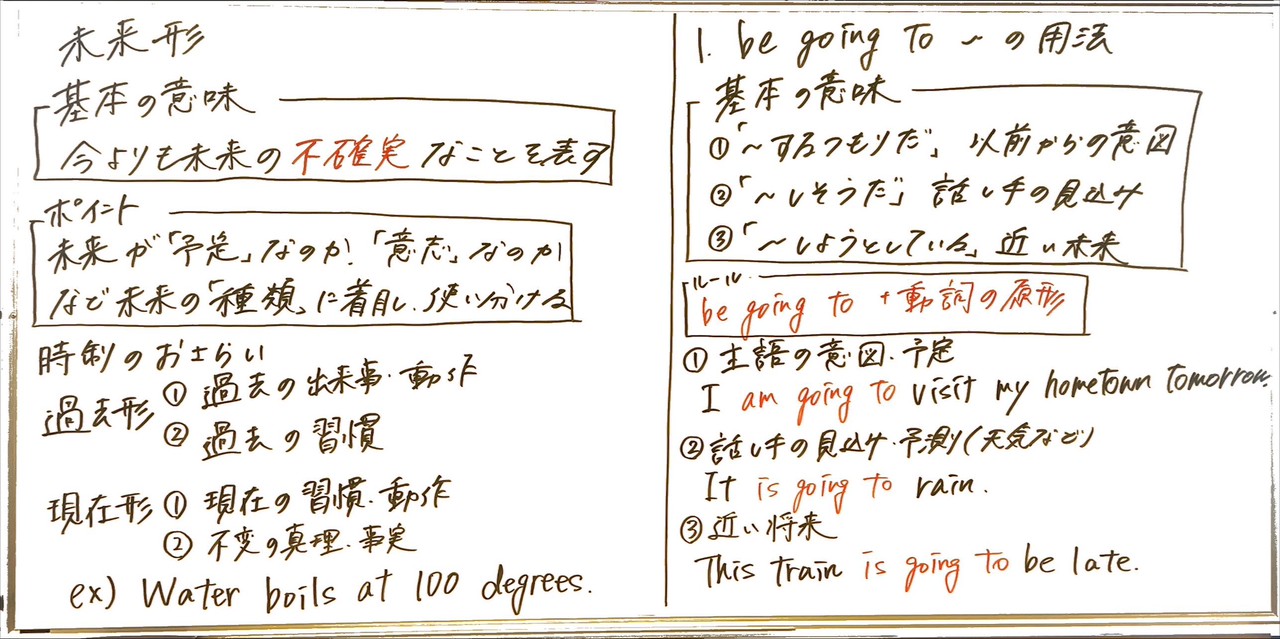 未来形
基本の意味
今よりも未来の不確実なことを表す
ポイント
未来が「予定」なのか!「意志」なのか
など未来の「種類」に着目し、使い分ける
時制のおさらい
過去形 ① 過去の出来事・動作
② 過去の習慣
現在形 ① 現在の習慣・動作
② 不変の真理・事実
ex) Water boils at 100 degrees.
1. be going to ~の用法
基本の意味
①「~するつもりだ」 以前からの意図
②「~しそうだ」 話し手の見込み
③「~しようとしている」 近い未来
ルール
be going to +動詞の原形
① 主語の意図・予定
I am going to visit my hometown tomorrow.
② 話し手の見込み・予測(天気など)
It is going to rain.
③ 近い将来
This train is going to be late.